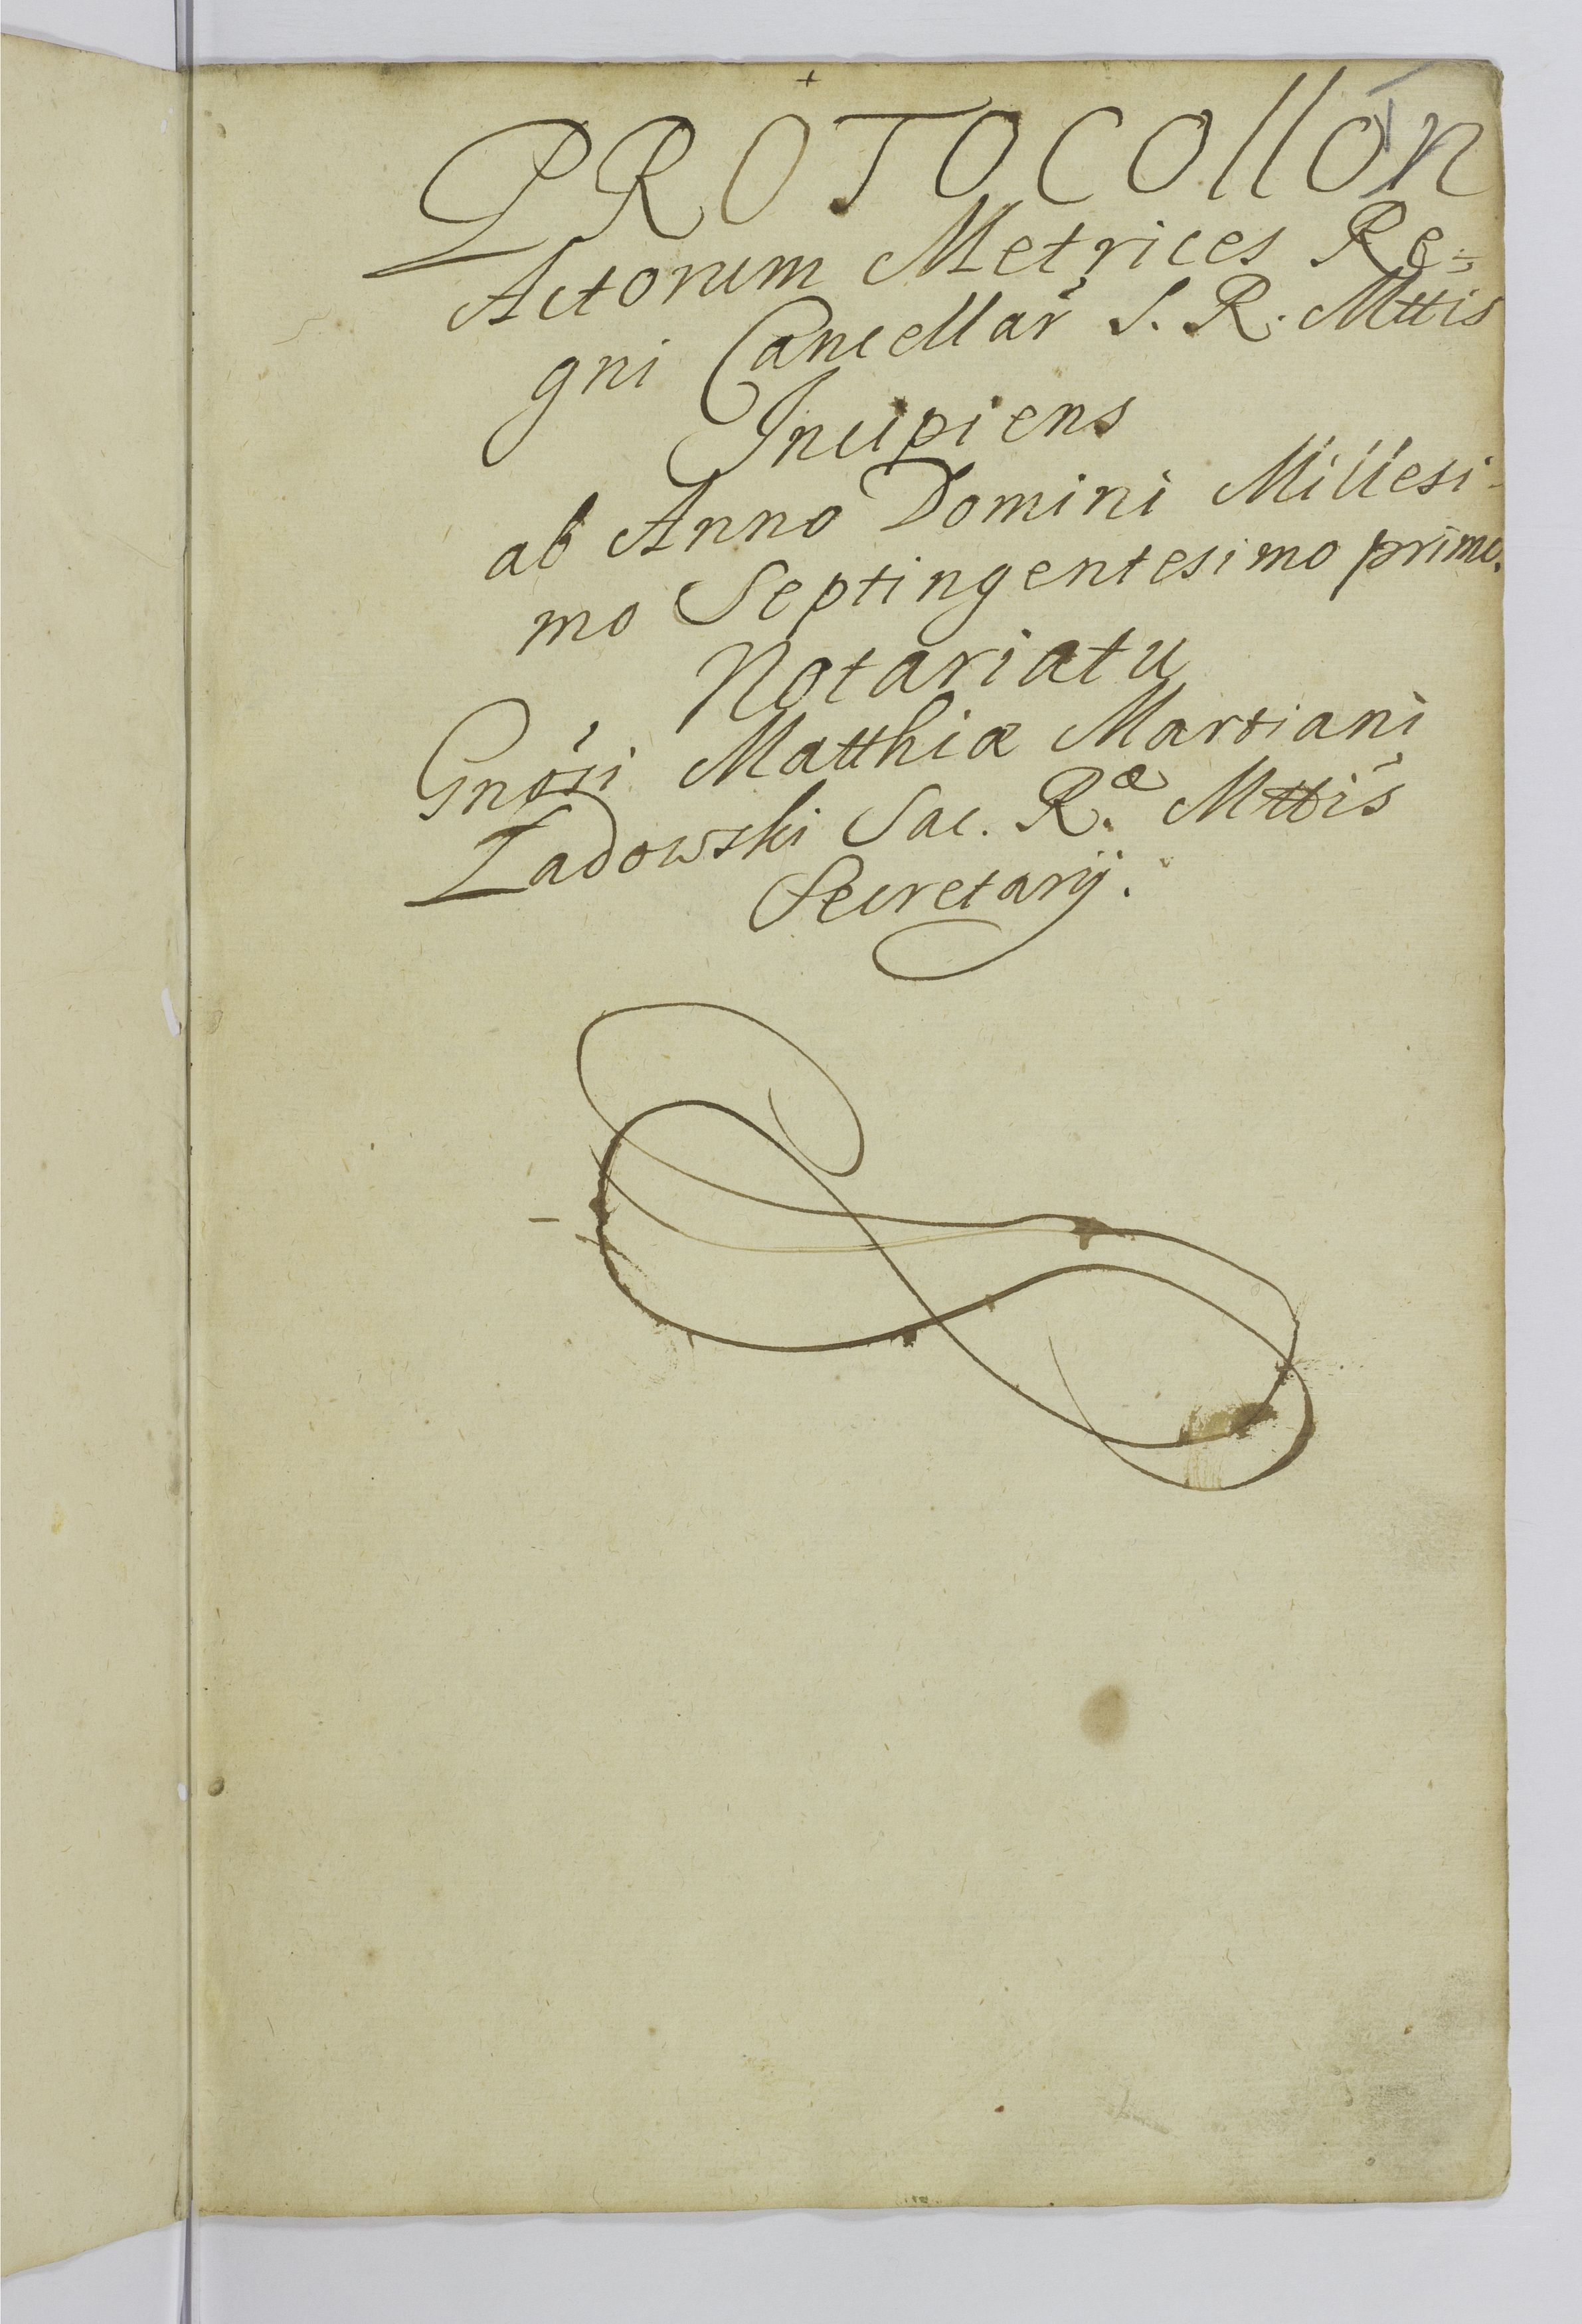 PROTOCOllon
Actorum Metrices Re=
gni Cancellar S. R. Mttis
Incipiens
ab Anno Domini Millesi-
mo Septingentesimo primo.
Notariatu
Gnosi Matthiæ Martiani
Ladowski Sac. R.æ Mttis
Secretarij.